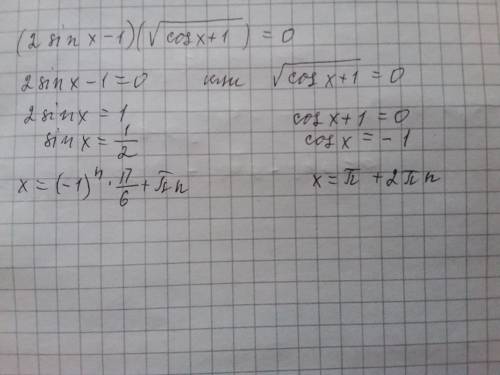 (2 sin x - 1)(√(cos x + 1)) = 0
2 sin x - 1 = 0 или √(cos x + 1) = 0
2 sin x = 1 cos x + 1 = 0
sin x = 1/2 cos x = -1
x = (-1)ⁿ · π/6 + πn x = π + 2πn